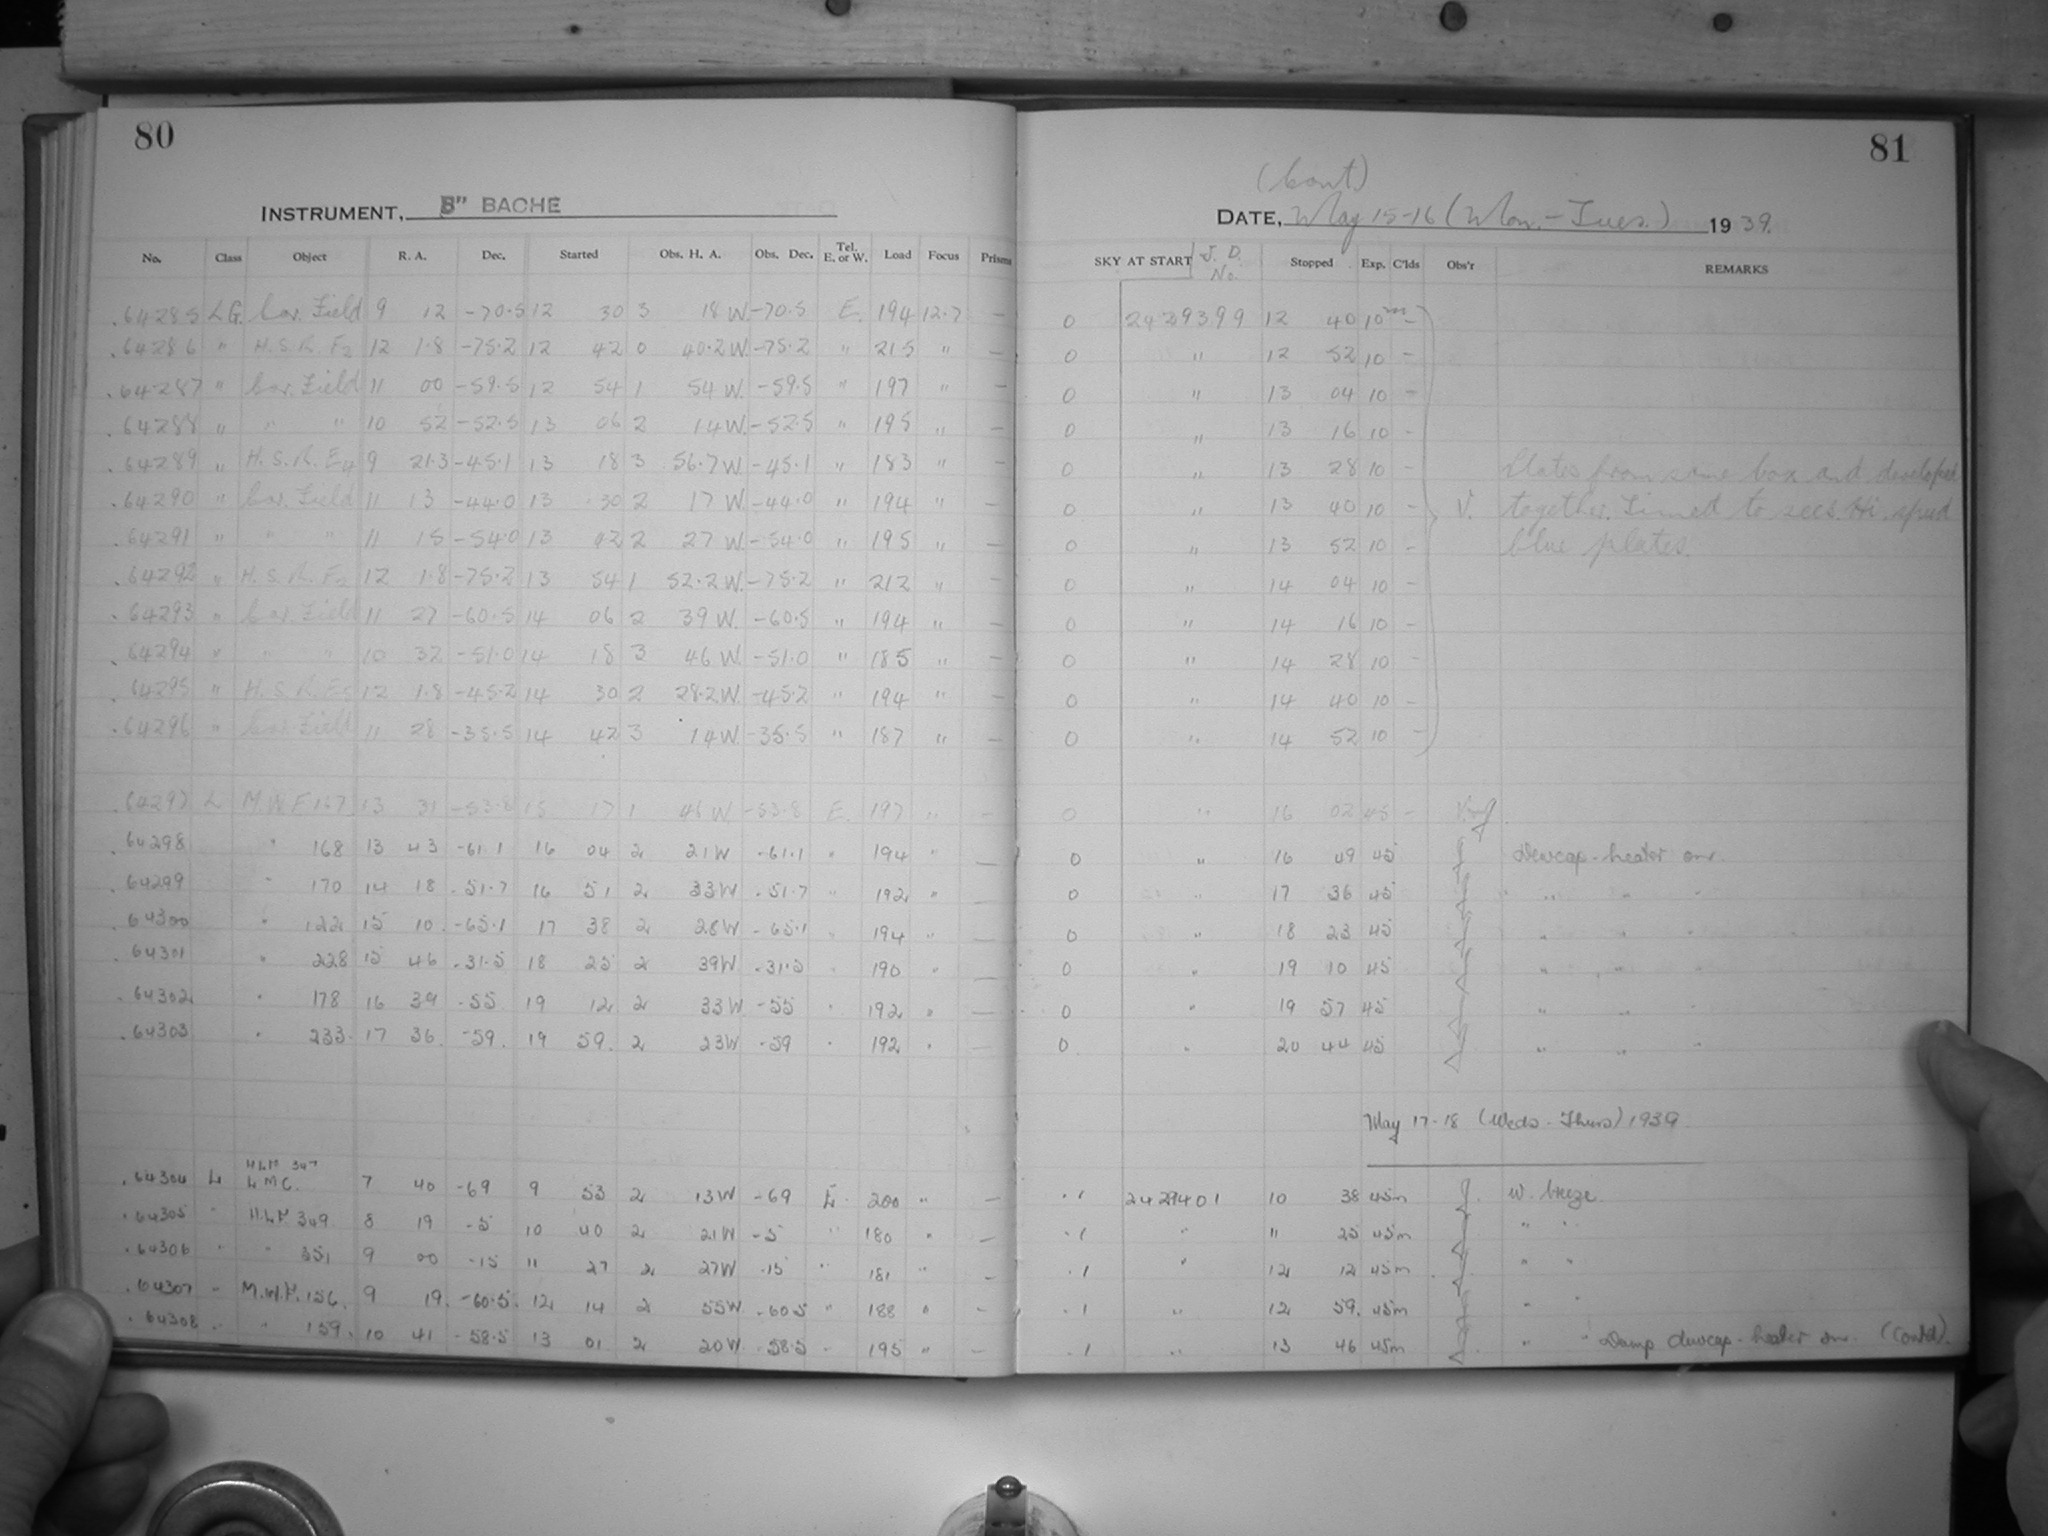 80
INSTRUMENT, 8" BACHE
No. Class Object R. A. Dec. Started Obs. H. A. Obs. Dec. Tel. E. or W. Load Focus Prisms
.64285 LG. Car. Field 9 12 -70.5 12 30 3 18 W -70.5 E. 194 12.7 —
.64286 " H.S.R. F2 12 1.8 -75.2 12 42 0 40.2 W. -75.2 " 215 " —
.64287 " Car. Field 11 00 -59.5 12 54 1 54 W. -59.5 " 197 " —
.64288 " " " 10 52 -52.5 13 06 2 14 W. -52.5 " 195 "
.64289 " H.S.R. E4 9 21.3 -45.1 13 18 3 56.7 W. -45.1 " 183 " —
.64290 " Car. Field 11 13 -44.0 13 30 2 17 W. -44.0 " 194 " —
.64291 " " " 11 15 -54.0 13 42 2 27 W. -54.0 " 195 " —
.64292 " H.S.R. F2 12 1.8 -75.2 13 54 1 52.2 W -75.2 " 212 " —
.64293 " Car. Field 11 27 -60.5 14 06 2 39 W. -60.5 " 194 " —
.64294 " " " 10 32 -51.0 14 18 3 46 W. -51.0 " 185 " —
.64295 " H.S.R. E5 12 1.8 -45.2 14 30 2 28.2 W. -45.2 " 194 " —
.64296 " Car. Field 11 28 -35.5 14 42 3 14 W. -35.5 " 187 " —
.64297 L M.W.F. 167 13 31 -53.8 15 17 1 46 W -53.8 E. 197 " —
.64298 " 168 13 43 -61.1 16 04 2 21 W -61.1 " 194 " —
.64299 " 170 14 18 -51.7 16 51 2 33 W -51.7 " 192 " —
.64300 " 122 15 10 -65.1 17 38 2 28 W -65.1 " 194 " —
.64301 " 228 15 46 -31.5 18 25 2 39 W -31.5 " 190 " —
.64302 " 178 16 39 -55 19 12 2 33 W -55 " 192 " —
.64303 " 233 17 36 -59 19 59 2 23 W -59 " 192 " —
H.L.F. 347
.64304 L L.M.C. 7 40 -69 9 53 2 13 W -69 E. 200 " —
.64305 " H.L.F. 349 8 19 -5 10 40 2 21 W -5 " 180 " —
.64306 " " 351 9 00 -15 11 27 2 27 W -15 " 181 " —
.64307 " M.W.F. 156 9 19 -60.5 12 14 2 55 W -60.5 " 188 " —
.64308 " " 159 10 41 -58.5 13 01 2 20 W -58.5 " 195 " —
81
(Cont.)
DATE, May 15-16 (Mon. - Tues.) 1939.
SKY AT START J. D. No. Stopped Exp. C'lds Obs'r REMARKS
0 2429399 12 40 10m —
0 " 12 52 10 —
0 " 13 04 10 —
0 " 13 16 10 —
0 " 13 28 10 — Plates from same box and developed
0 " 13 40 10 — V. together. Timed to secs. Hi. speed
0 " 13 52 10 — blue plates.
0 " 14 04 10 —
0 " 14 16 10 —
0 " 14 28 10 —
0 " 14 40 10 —
0 " 14 52 10 —
0 " 16 02 45 —
0 " 16 49 45 Dewcap-heater on.
0 " 17 36 45 " " "
0 " 18 23 45 " " "
0 " 19 10 45 " " "
0 " 19 57 45 " " "
0 " 20 44 45 " " "
May 17-18 (Weds - Thurs) 1939
.1 2429401 10 38 45m J. W. breeze.
.1 " 11 25 45m " "
.1 " 12 12 45m " "
.1 " 12 59 45m " "
.1 " 13 46 45m " " Damp dewcap-heater on. (Contd).